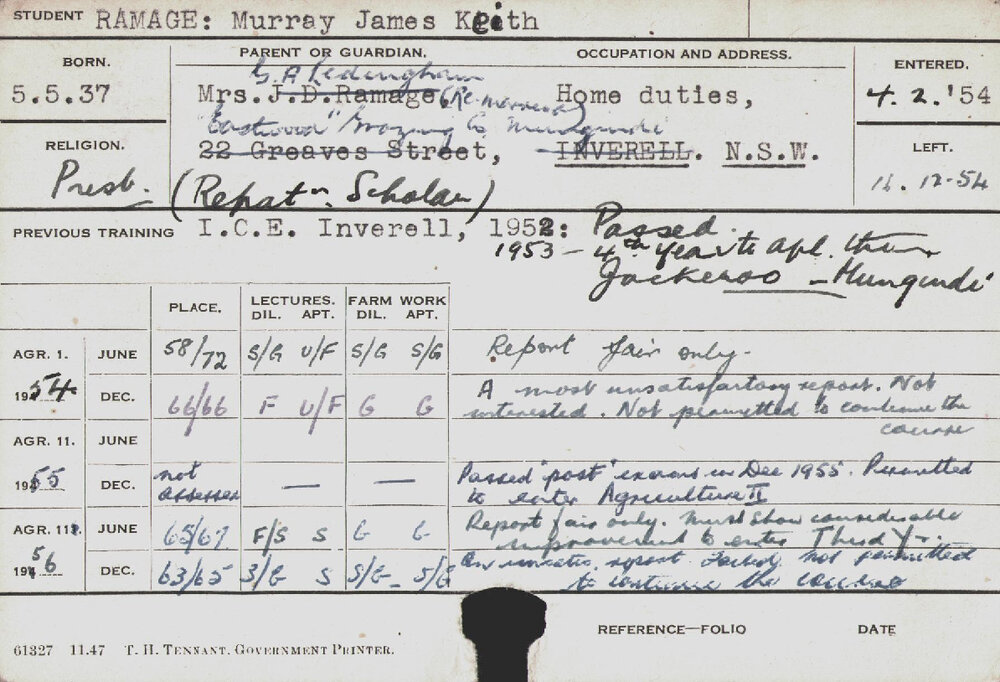 STUDENT RAMAGE: Murray James Keith
BORN. PARENT OR GUARDIAN. OCCUPATION AND ADDRESS. ENTERED.
G. A Ledingham
5.5.37 Mrs. J.D. Ramage (Re-married) Home duties, 4.2.'54
"Eastwood" Grazing Co Mungindi
RELIGION. 22 Greaves Street, INVERELL. N.S.W. LEFT.
Presb. (Repatn. Scholar) 16.12-54
PREVIOUS TRAINING I.C.E. Inverell, 1952: Passed.
1953 - 4th Year to Apl. then
Jackeroo - Mungindi
PLACE. LECTURES. FARM WORK
DIL. APT. DIL. APT.
AGR. 1. JUNE 58/72 S/G U/F S/G S/G Report fair only.
1954 DEC. 66/66 F U/F G G A most unsatisfactory report. Not
interested. Not permitted to continue the
course
AGR. 11. JUNE
1955 DEC. not assessed — — Passed "post" exams in Dec 1955. Permitted
to enter Agriculture II
AGR. 111. JUNE 65/67 F/S S G G Report fair only. Must show considerable
improvement to enter Third Yr.
1956 DEC. 63/65 S/G S S/G S/G An unsatis. report. Failed, not permitted
to continue the course
REFERENCE—FOLIO DATE
61327 11.47 T. H. TENNANT, GOVERNMENT PRINTER.